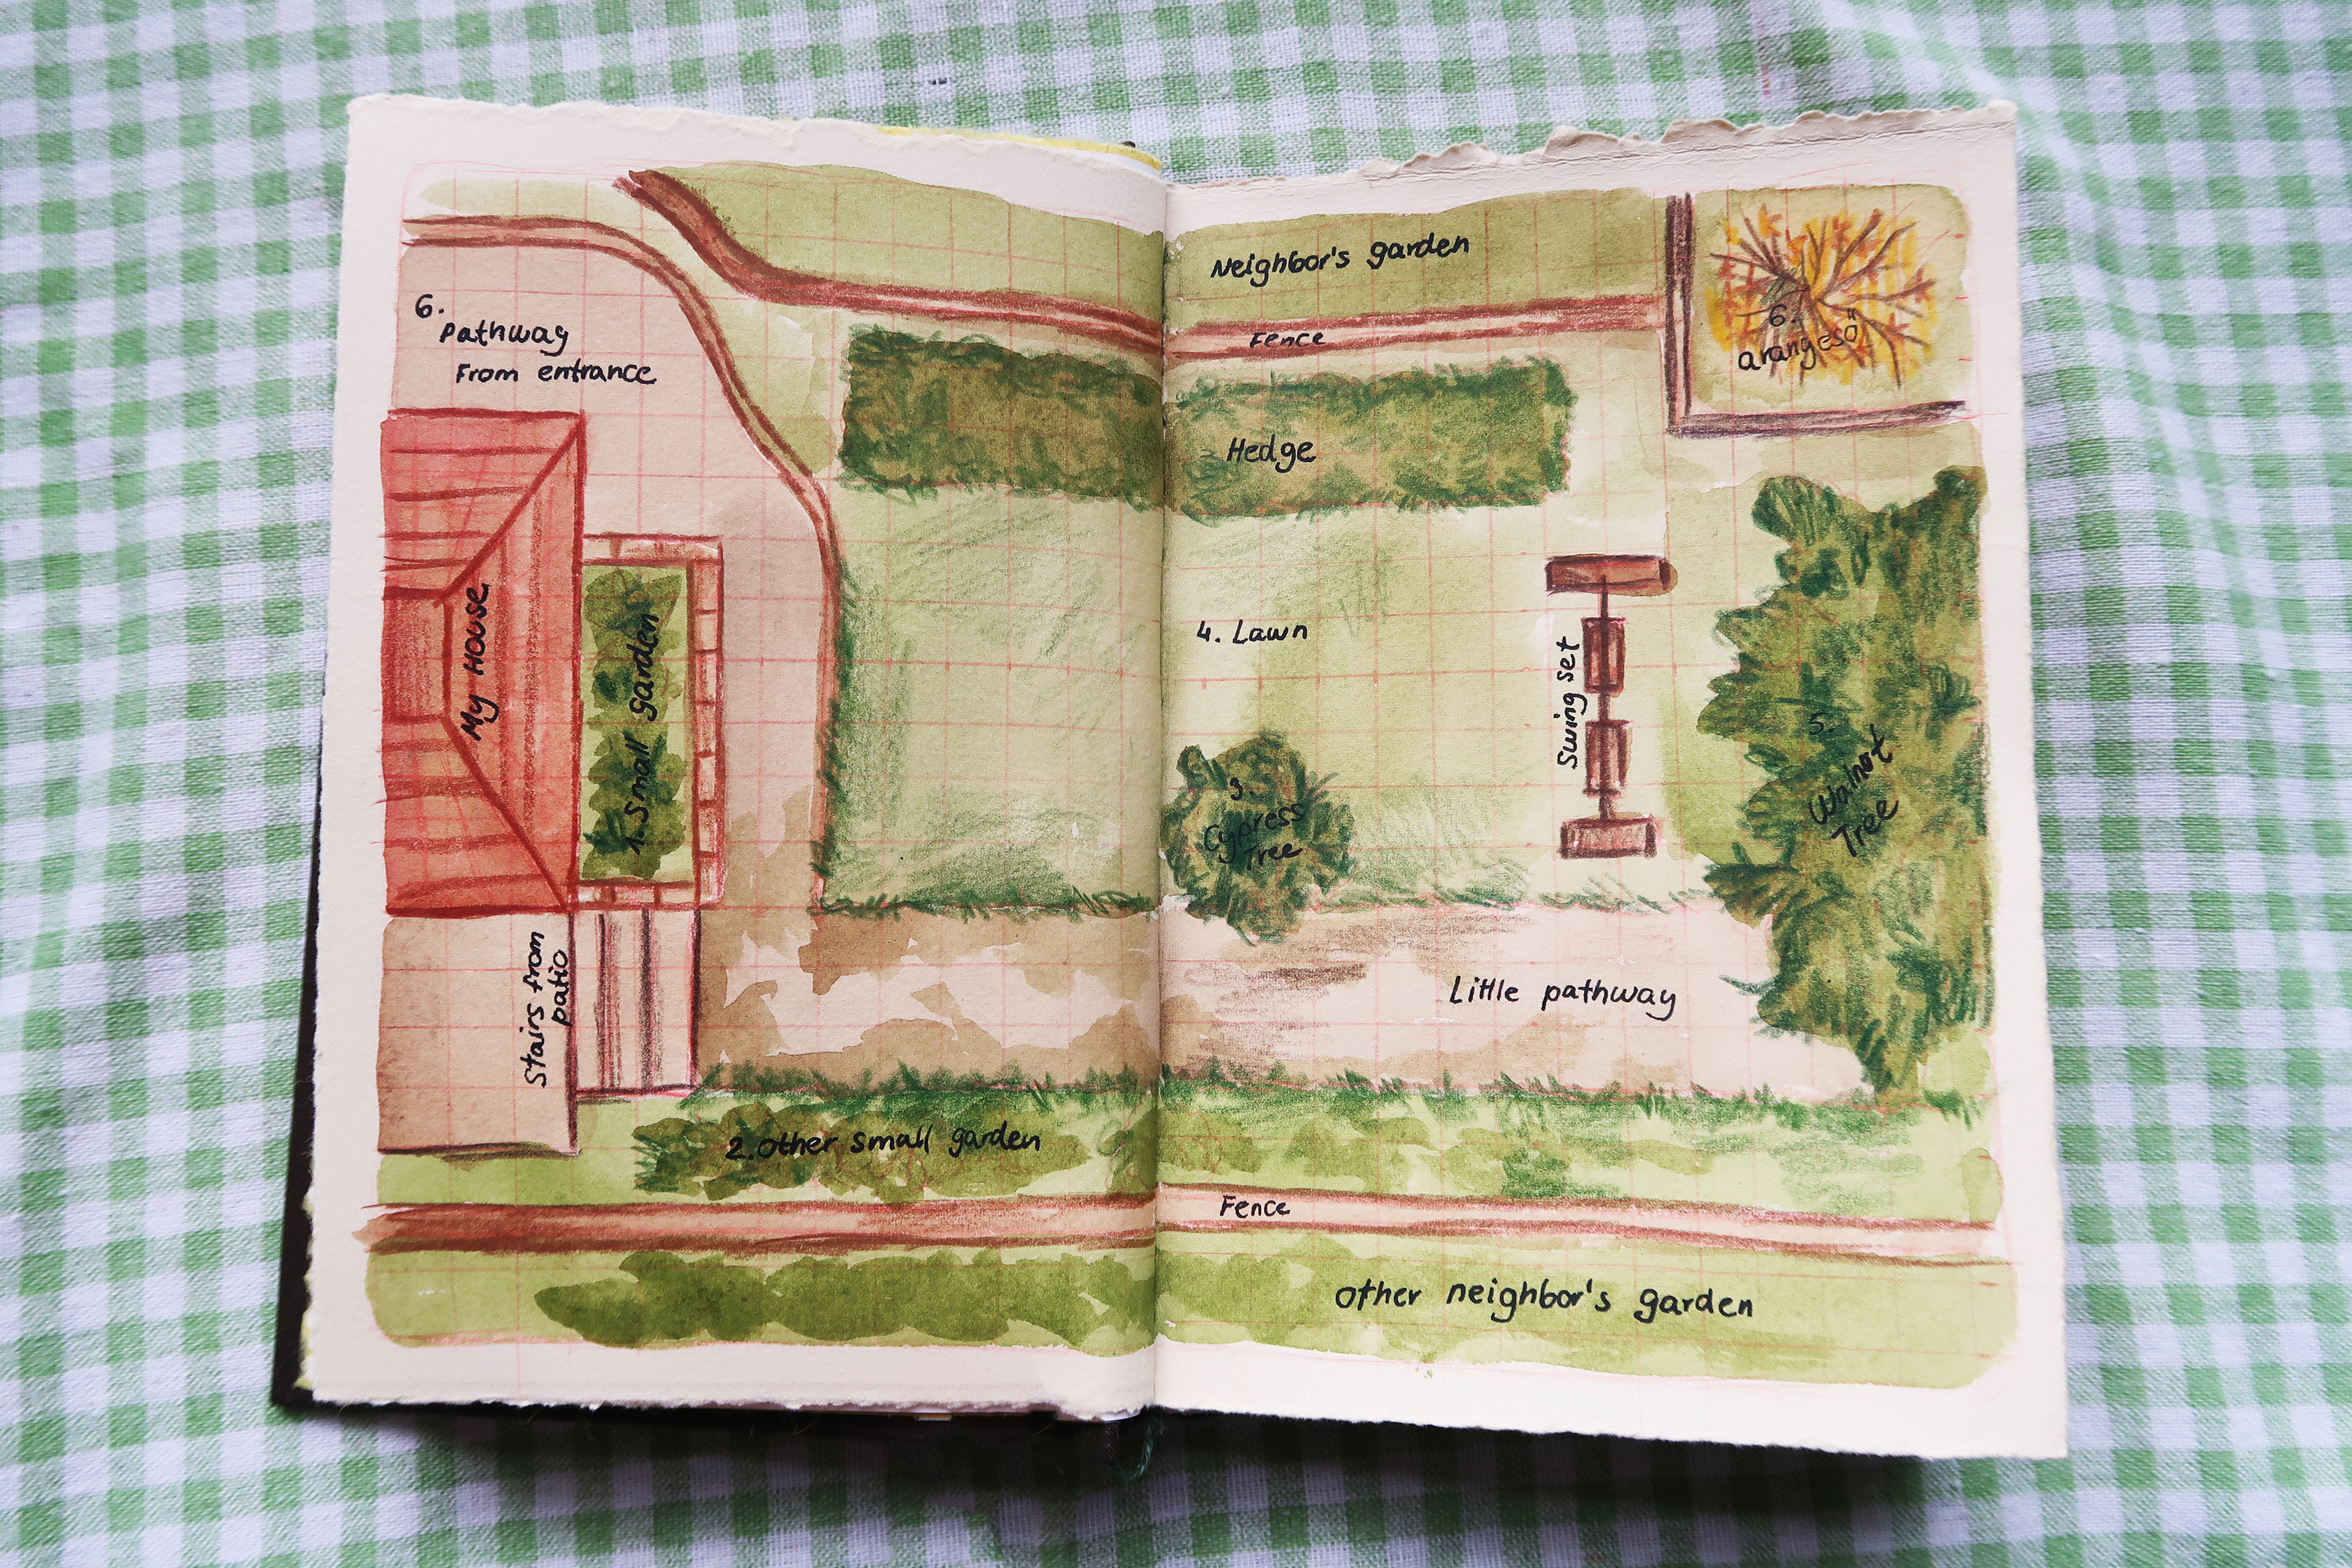 6.
Pathway
From entrance
My House
1. Small garden
Stairs from
patio
2. Other small garden
Neighbor's garden
Fence
Hedge
6.
aranyeső
4. Lawn
Swing set
3.
Cypress
Tree
5.
Walnot
Tree
Little pathway
Fence
other neighbor's garden